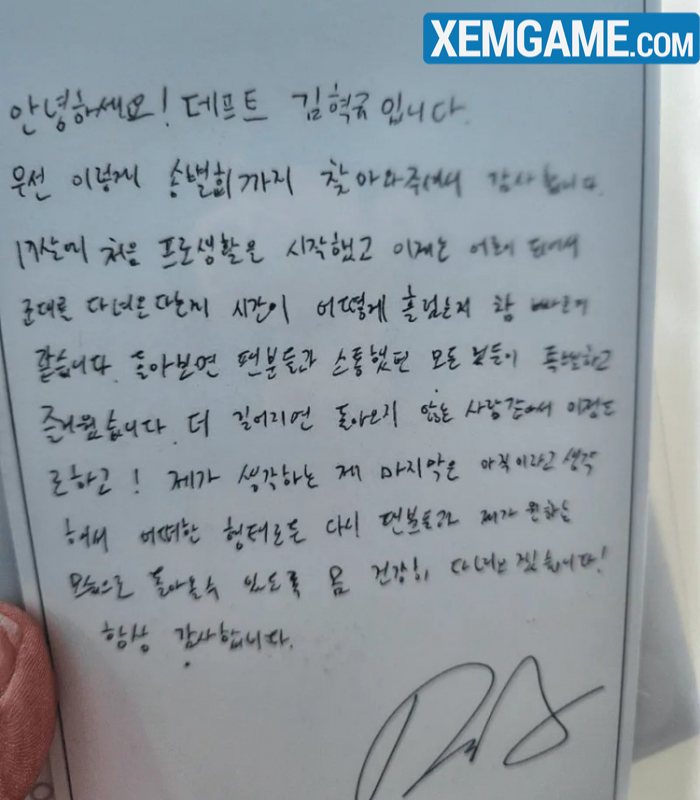 XEMGAME.COM
안녕하세요! 데프트 김혁규입니다.
우선 이렇게 송별회까지 찾아와주셔서 감사합니다.
17살에 처음 프로생활을 시작했고 이제는 어른이 되어서
군대를 다녀온다는게 시간이 어떻게 흘렀는지 참 빠른거
같습니다. 돌아보면 팬분들과 소통했던 모든 날들이 특별하고
즐거웠습니다. 더 길어지면 돌아오지 않는 사람같아서 이정도
로하고! 제가 생각하는 제 마지막은 아직이라고 생각
해서 어떠한 형태로든 다시 팬분들과 제가 원하는
모습으로 돌아올수 있도록 몸 건강히 다녀오겠습니다!
항상 감사합니다.